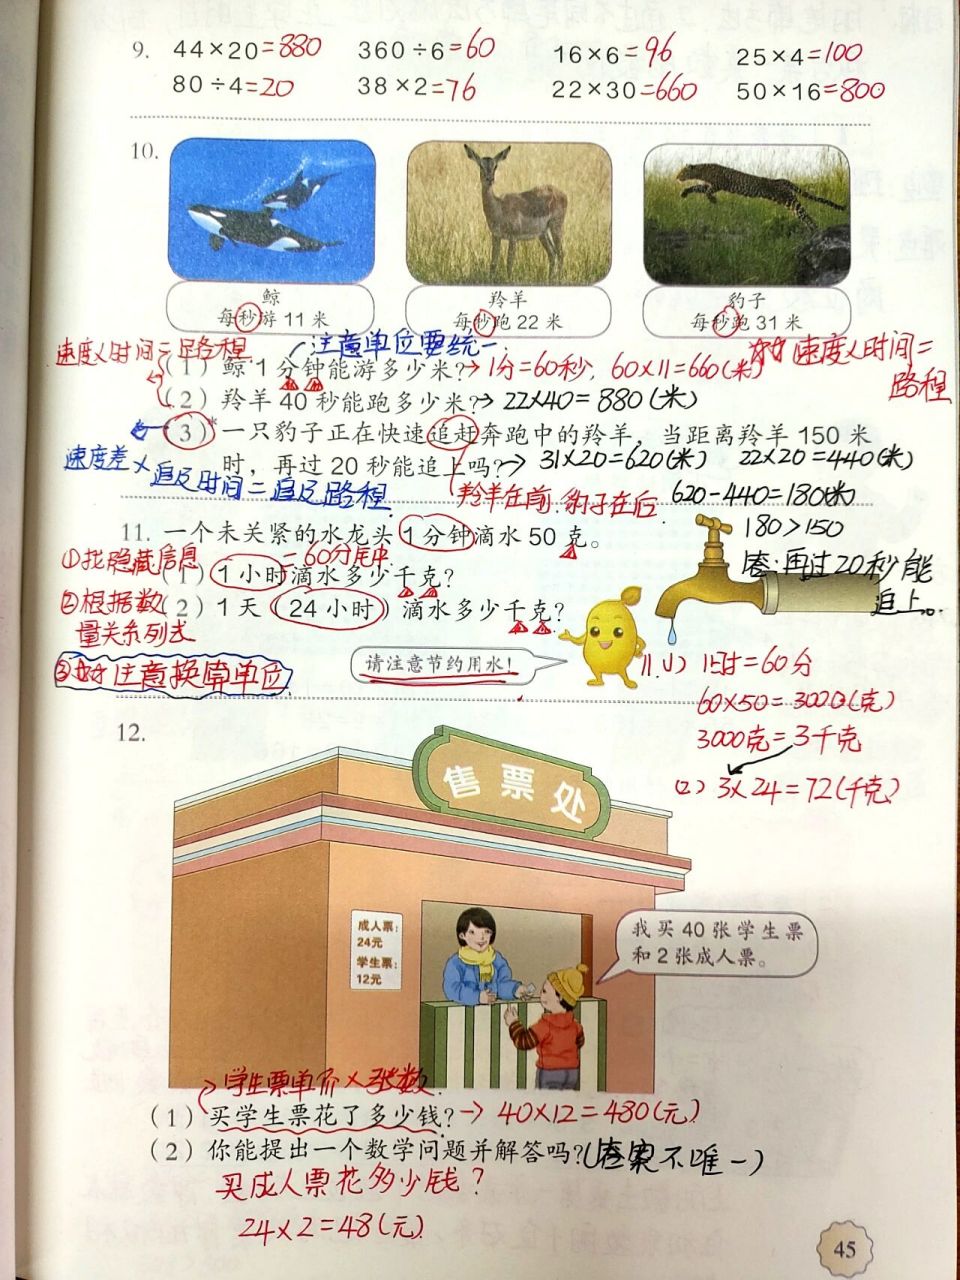 9. 44×20=880 360÷6=60 16×6=96 25×4=100
80÷4=20 38×2=76 22×30=660 50×16=800
10.
鲸 羚羊 豹子
每秒游 11 米 每秒跑 22 米 每秒跑 31 米
速度×时间=路程 注意单位要统一. 速度×时间=
路程
(1) 鲸 1 分钟能游多少米?→1分=60秒, 60×11=660(米)
(2) 羚羊 40 秒能跑多少米?→22×40=880(米)
(3)* 一只豹子正在快速追赶奔跑中的羚羊，当距离羚羊 150 米
时，再过 20 秒能追上吗?→31×20=620(米) 22×20=440(米)
速度差×追及时间=追及路程. 羚羊在前,豹子在后. 620-440=180(米)
180>150
答:再过20秒能
追上。
11. 一个未关紧的水龙头 1 分钟滴水 50 克。
①找隐藏信息 =60分钟
(1) 1 小时滴水多少千克?
②根据数
量关系列式
(2) 1 天 (24 小时) 滴水多少千克?
③注意换算单位
请注意节约用水!
11.(1) 1时=60分
60×50=3000(克)
3000克=3千克
(2) 3×24=72(千克)
12.
售票处
成人票:
24元
学生票:
12元
我买 40 张学生票
和 2 张成人票。
学生票单价×张数.
(1) 买学生票花了多少钱?→40×12=480(元)
(2) 你能提出一个数学问题并解答吗?(答案不唯一)
买成人票花多少钱?
24×2=48(元)
45